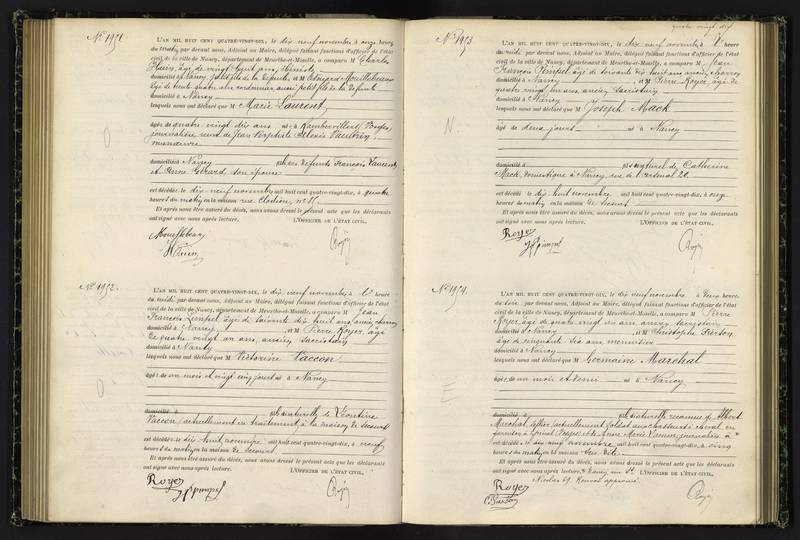 N° 1951.
L'AN MIL HUIT CENT QUATRE-VINGT-DIX, le dix neuf novembre à onze heures
du matin, par devant nous, Adjoint au Maire, délégué faisant fonctions d'officier de l'état
civil de la ville de Nancy, département de Meurthe-et-Moselle, a comparu M Charles
âgé de vingt huit ans,
domicilié à Nancy, petit fils de la défunte et M Edouard Mouillebeau
âgé de trente quatre ans cordonnier aussi petit fils de la défunte
domicilié à Nancy
lesquels nous ont déclaré que M Marie Laurent
âgée de quatre vingt dix ans née à Rambervillers, Vosges,
journalière veuve de Jean Baptiste Alexis Vautrin,
manœuvre
domiciliée à Nancy fille des défunts François Laurent
et Anne Gérard, son épouse
est décédée le dix neuf novembre mil huit cent quatre-vingt-dix, à quatre
heures du matin en la maison rue Clodion, n°
Et après nous être assuré du décès, nous avons dressé le présent acte que les déclarants
ont signé avec nous après lecture. L'OFFICIER DE L'ÉTAT CIVIL,
O
N° 1952.
L'AN MIL HUIT CENT QUATRE-VINGT-DIX, le dix neuf novembre à une heure
du midi, par devant nous, Adjoint au Maire, délégué faisant fonctions d'officier de l'état
civil de la ville de Nancy, département de Meurthe-et-Moselle, a comparu M Jean
François Pimpel âgé de soixante dix huit ans, ancien charron
domicilié à Nancy et M Pierre Royer, âgé
de quatre vingt un ans, ancien sacristain
domicilié à Nancy
lesquels nous ont déclaré que M Victorine Vaccon
âgée de un mois et vingt cinq jours née à Nancy
domicilié à fille naturelle de Léontine
Vaccon, actuellement en traitement à la maison de secours
est décédée le dix huit novembre mil huit cent quatre-vingt-dix, à neuf
heures du matin en la maison de secours
Et après nous être assuré du décès, nous avons dressé le présent acte que les déclarants
ont signé avec nous après lecture. L'OFFICIER DE L'ÉTAT CIVIL,
Royer
O
quatre vingt dix
N° 1953
L'AN MIL HUIT CENT QUATRE-VINGT-DIX, le dix neuf novembre à une heure
du midi, par devant nous, Adjoint au Maire, délégué faisant fonctions d'officier de l'état
civil de la ville de Nancy, département de Meurthe-et-Moselle, a comparu M Jean
François Pimpel, âgé de soixante dix huit ans, ancien charron
domicilié à Nancy et M Pierre Royer, âgé de
quatre vingt un ans, ancien sacristain
domicilié à Nancy
lesquels nous ont déclaré que M Joseph Mack
âgé de deux jours né à Nancy
N.
domicilié à fils naturel de Catherine
Mack, domestique à Nancy, rue de l'arsenal 20.
est décédé le dix huit novembre mil huit cent quatre-vingt-dix, à onze
heures du matin en la maison de secours
Et après nous être assuré du décès, nous avons dressé le présent acte que les déclarants
ont signé avec nous après lecture. L'OFFICIER DE L'ÉTAT CIVIL,
Royer
N° 1954.
L'AN MIL HUIT CENT QUATRE-VINGT-DIX, le dix neuf novembre à deux heures
du soir, par devant nous, Adjoint au Maire, délégué faisant fonctions d'officier de l'état
civil de la ville de Nancy, département de Meurthe-et-Moselle, a comparu M Pierre
Royer, âgé de quatre vingt un ans, ancien sacristain
domicilié à Nancy et M Christophe
âgé de cinquante dix ans menuisier
domicilié à Nancy
lesquels nous ont déclaré que M Germaine Maréchal
âgée de un mois et demi née à Nancy
E
domicilié à fille naturelle reconnue de Albert
Maréchal, actuellement soldat aux chasseurs à cheval en
garnison à Vosges, et de Anne Marie journalière à
est décédée le dix neuf novembre mil huit cent quatre-vingt-dix, à cinq
heures du matin en la maison
Et après nous être assuré du décès, nous avons dressé le présent acte que les déclarants
ont signé avec nous après lecture. à Nancy rue St L'OFFICIER DE L'ÉTAT CIVIL,
Nicolas 69. Renvoi approuvé.
Royer